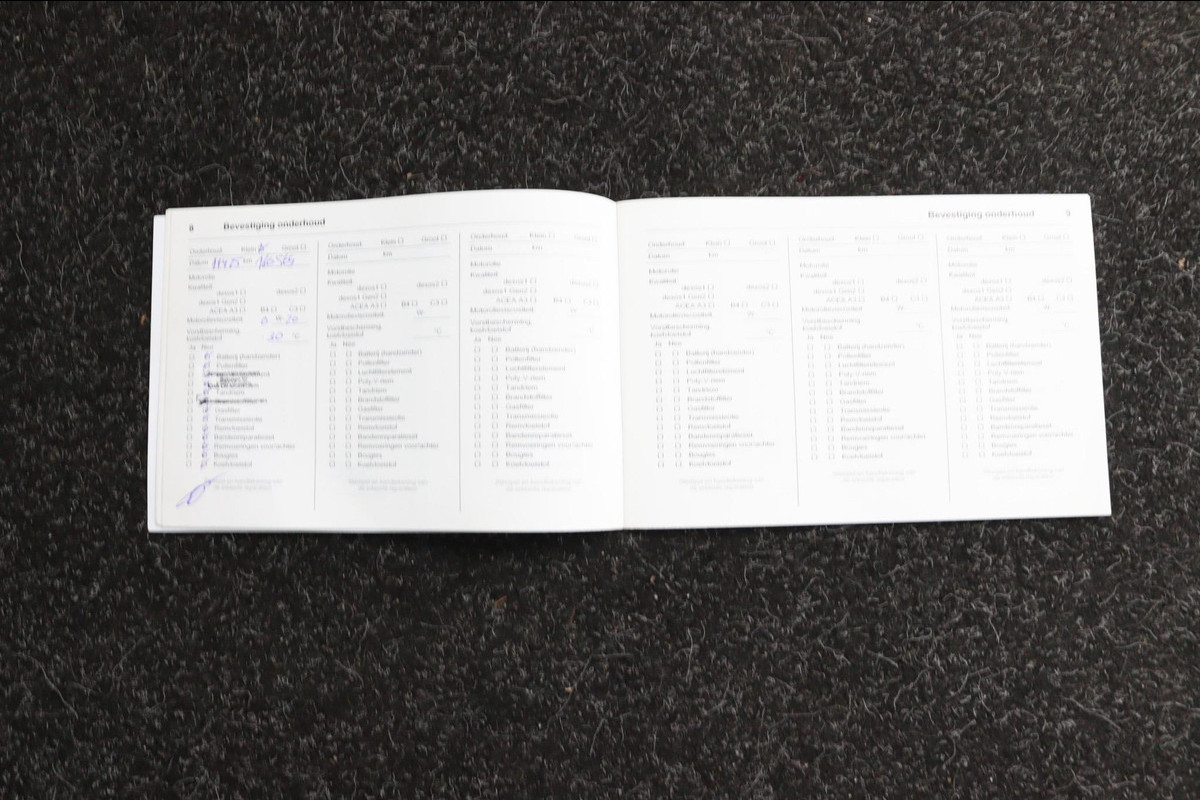 8 Bevestiging onderhoud
Onderhoud Klein Groot
Datum km
Motorolie
Kwaliteit
dexos1 dexos2
dexos1 Gen2
ACEA A3 B4 C3
Motorolieviscositeit 0 W 20
Vorstbescherming
koelvloeistof 30 °C
Ja Nee
Batterij (handzender)
Pollenfilter
Tandriem
Gasfilter
Transmissieolie
Remvloeistof
Bandenreparatieset
Remvoeringen voor/achter
Bougies
Koelvloeistof
Onderhoud Klein Groot
Datum km
Motorolie
Kwaliteit
dexos1 dexos2
dexos1 Gen2
ACEA A3 B4 C3
Motorolieviscositeit W
Vorstbescherming
koelvloeistof °C
Ja Nee
Batterij (handzender)
Pollenfilter
Luchtfilterelement
Poly V-riem
Tandriem
Brandstoffilter
Gasfilter
Transmissieolie
Remvloeistof
Bandenreparatieset
Remvoeringen voor/achter
Bougies
Koelvloeistof
Onderhoud Klein Groot
Datum km
Motorolie
Kwaliteit
dexos1 dexos2
dexos1 Gen2
ACEA A3 B4 C3
Motorolieviscositeit W
Vorstbescherming
koelvloeistof °C
Ja Nee
Batterij (handzender)
Pollenfilter
Luchtfilterelement
Poly V-riem
Tandriem
Brandstoffilter
Gasfilter
Transmissieolie
Remvloeistof
Bandenreparatieset
Remvoeringen voor/achter
Bougies
Koelvloeistof
Bevestiging onderhoud 9
Onderhoud Klein Groot
Datum km
Motorolie
Kwaliteit
dexos1 dexos2
dexos1 Gen2
ACEA A3 B4 C3
Motorolieviscositeit W
Vorstbescherming
koelvloeistof °C
Ja Nee
Batterij (handzender)
Pollenfilter
Luchtfilterelement
Poly V-riem
Tandriem
Brandstoffilter
Gasfilter
Transmissieolie
Remvloeistof
Bandenreparatieset
Remvoeringen voor/achter
Bougies
Koelvloeistof
Onderhoud Klein Groot
Datum km
Motorolie
Kwaliteit
dexos1 dexos2
dexos1 Gen2
ACEA A3 B4 C3
Motorolieviscositeit W
Vorstbescherming
koelvloeistof °C
Ja Nee
Batterij (handzender)
Pollenfilter
Luchtfilterelement
Poly V-riem
Tandriem
Brandstoffilter
Gasfilter
Transmissieolie
Remvloeistof
Bandenreparatieset
Remvoeringen voor/achter
Bougies
Koelvloeistof
Onderhoud Klein Groot
Datum km
Motorolie
Kwaliteit
dexos1 dexos2
dexos1 Gen2
ACEA A3 B4 C3
Motorolieviscositeit W
Vorstbescherming
koelvloeistof °C
Ja Nee
Batterij (handzender)
Pollenfilter
Luchtfilterelement
Poly V-riem
Tandriem
Brandstoffilter
Gasfilter
Transmissieolie
Remvloeistof
Bandenreparatieset
Remvoeringen voor/achter
Bougies
Koelvloeistof